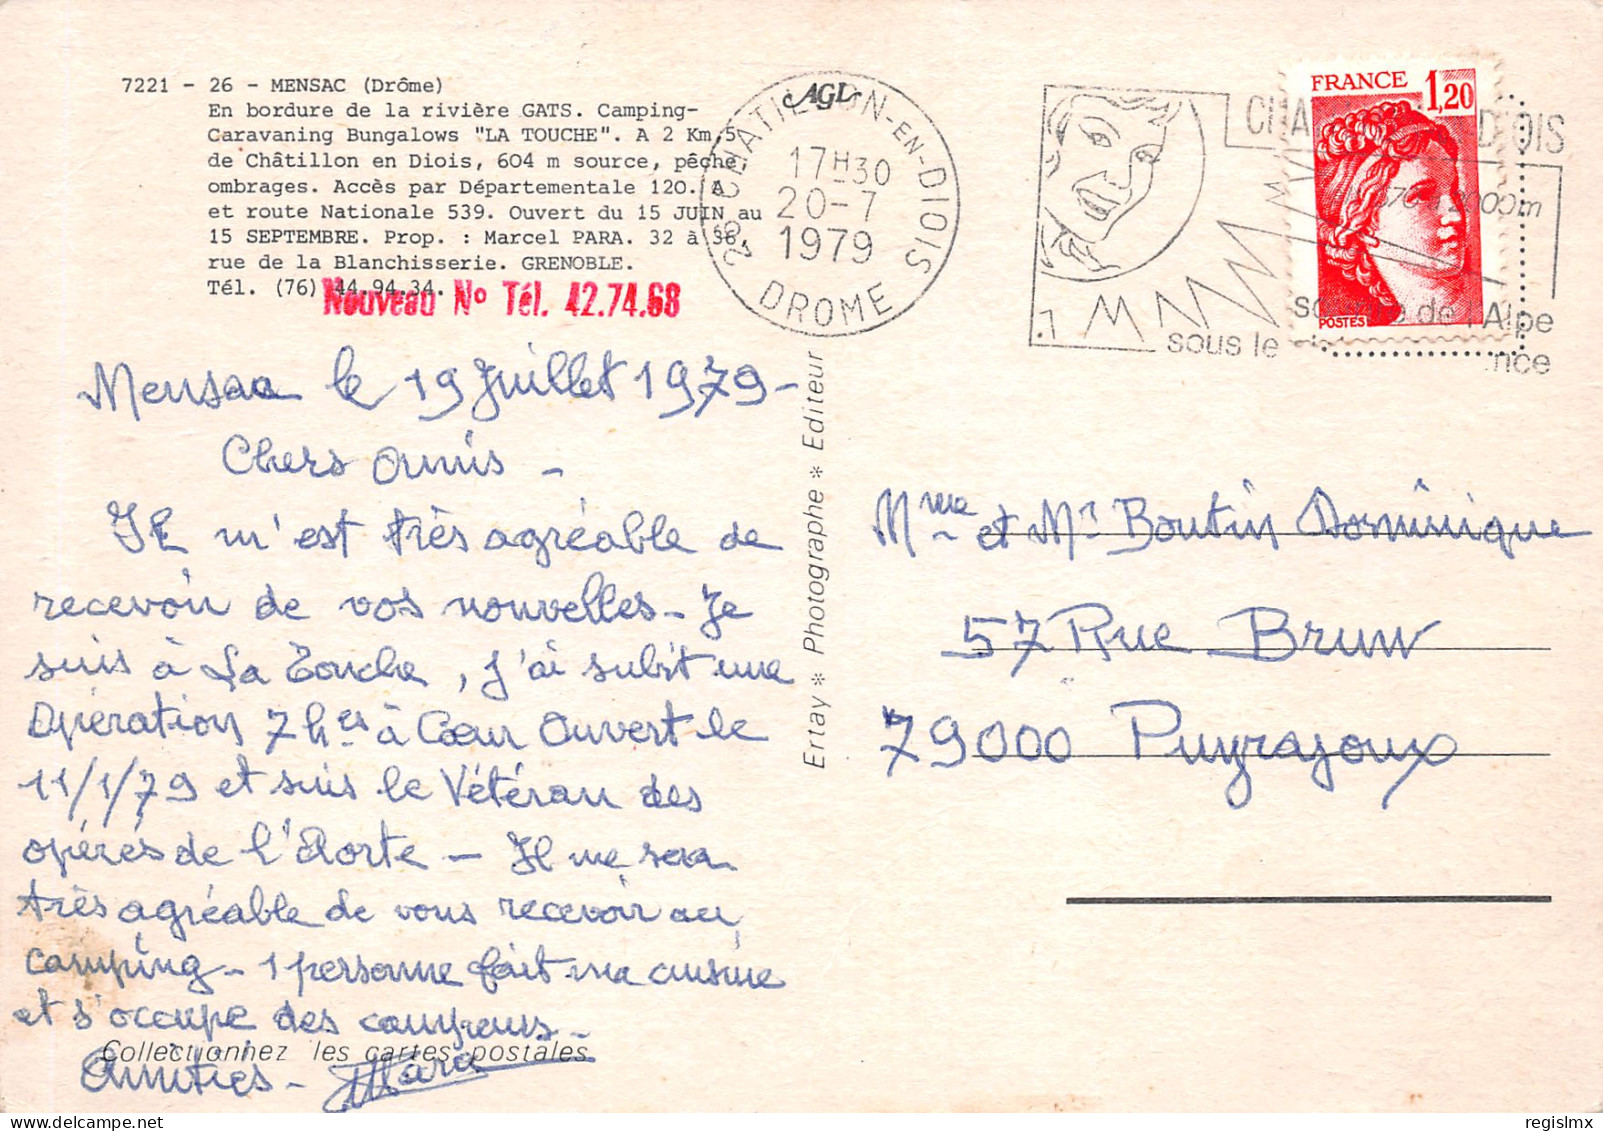 7221 - 26 - MENSAC (Drôme)
En bordure de la rivière GATS. Camping-
Caravaning Bungalows "LA TOUCHE". A 2 Km,5
de Châtillon en Diois, 604 m source, pêche,
ombrages. Accès par Départementale 120. A
et route Nationale 539. Ouvert du 15 JUIN au
15 SEPTEMBRE. Prop. : Marcel PARA. 32 à 36,
rue de la Blanchisserie. GRENOBLE.
Tél. (76) 44.94.34.
Nouveau N° Tél. 42.74.68
AGL
26 CHATILLON-EN-DIOIS
17H30
20-7
1979
DROME
FRANCE 1,20
POSTES
CHA DIOIS
570 à 2000m
sous le
de l'Alpe
nce
Mensac le 19 Juillet 1979-
Chers Amis -
Il m'est très agréable de
recevoir de vos nouvelles - Je
suis à La Touche, j'ai subit une
Opération 7 hes à Cœur Ouvert le
11/1/79 et suis le Vétéran des
opérés de l'Aorte - Il me sera
très agréable de vous recevoir au
camping - 1 personne fait ma cuisine
et s'occupe des campeurs -
Amitiés - MPara
Collectionnez les cartes postales
Ertay * Photographe * Editeur
Mme et Mr Boutin Dominique
57 Rue Brun
79000 Puyrajoux
regislmx